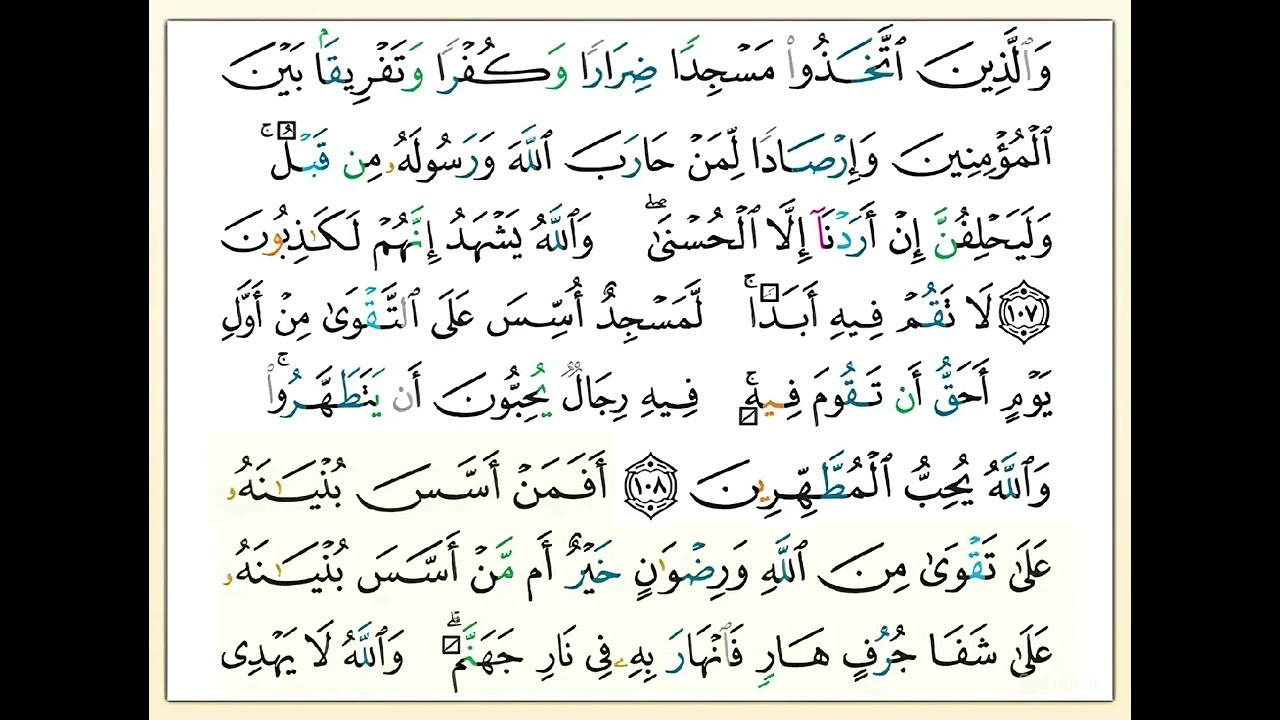 وَٱلَّذِينَ ٱتَّخَذُوا۟ مَسْجِدًا ضِرَارًا وَكُفْرًا وَتَفْرِيقًۢا بَيْنَ
ٱلْمُؤْمِنِينَ وَإِرْصَادًا لِّمَنْ حَارَبَ ٱللَّهَ وَرَسُولَهُۥ مِن قَبْلُ ۚ
وَلَيَحْلِفُنَّ إِنْ أَرَدْنَآ إِلَّا ٱلْحُسْنَىٰ ۖ وَٱللَّهُ يَشْهَدُ إِنَّهُمْ لَكَـٰذِبُونَ
١٠٧ لَا تَقُمْ فِيهِ أَبَدًا ۚ لَّمَسْجِدٌ أُسِّسَ عَلَى ٱلتَّقْوَىٰ مِنْ أَوَّلِ
يَوْمٍ أَحَقُّ أَن تَقُومَ فِيهِ ۚ فِيهِ رِجَالٌ يُحِبُّونَ أَن يَتَطَهَّرُوا۟ ۚ
وَٱللَّهُ يُحِبُّ ٱلْمُطَّهِّرِينَ ١٠٨ أَفَمَنْ أَسَّسَ بُنْيَـٰنَهُۥ
عَلَىٰ تَقْوَىٰ مِنَ ٱللَّهِ وَرِضْوَٰنٍ خَيْرٌ أَم مَّنْ أَسَّسَ بُنْيَـٰنَهُۥ
عَلَىٰ شَفَا جُرُفٍ هَارٍ فَٱنْهَارَ بِهِۦ فِى نَارِ جَهَنَّمَ ۗ وَٱللَّهُ لَا يَهْدِى